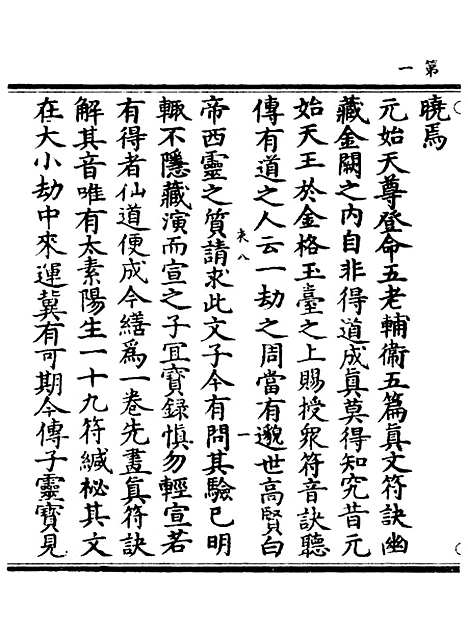 第一
曉焉
元始天尊登命五老輔衞五篇眞文符訣幽
藏金闕之內自非得道成眞莫得知究昔元
始天王於金格玉臺之上賜授衆符音訣聽
傳有道之人云一劫之周當有邈世高賢白
夾八
一
帝西靈之質請求此文子今有問其驗已明
輒不隱藏演而宣之子冝寶録愼勿輕宣若
有得者仙道便成今繕爲一卷先畫眞符訣
解其音唯有太素陽生一十九符緘柲其文
在大小劫中來運冀有可期今傳子靈寶見